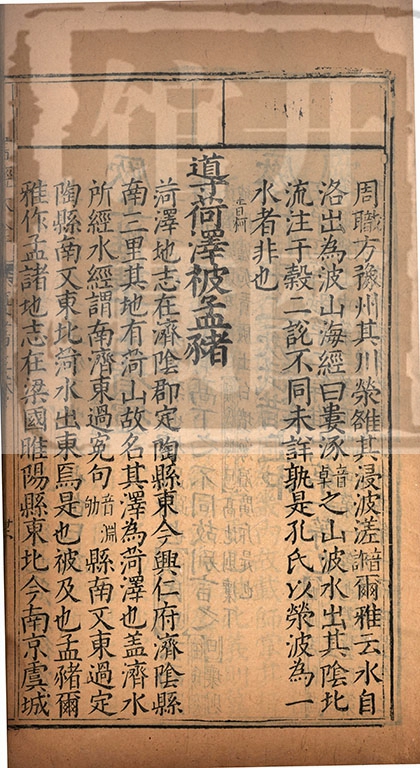 周職方豫州其川滎雒其浸波溠音詐爾雅云水自
洛出為波山海經曰婁涿音卓之山波水出其陰北
流注于穀二說不同未詳孰是孔氏以滎波為一
水者非也
導菏澤被孟豬
音柯
菏澤地志在濟陰郡定陶縣東今興仁府濟陰縣
南三里其地有菏山故名其澤為菏澤也盖濟水
所經水經謂南濟東過寃句音淵劬縣南又東過定
陶縣南又東北菏水出東焉是也被及也孟豬爾
雅作孟諸地志在梁國睢陽縣東北今南京虞城